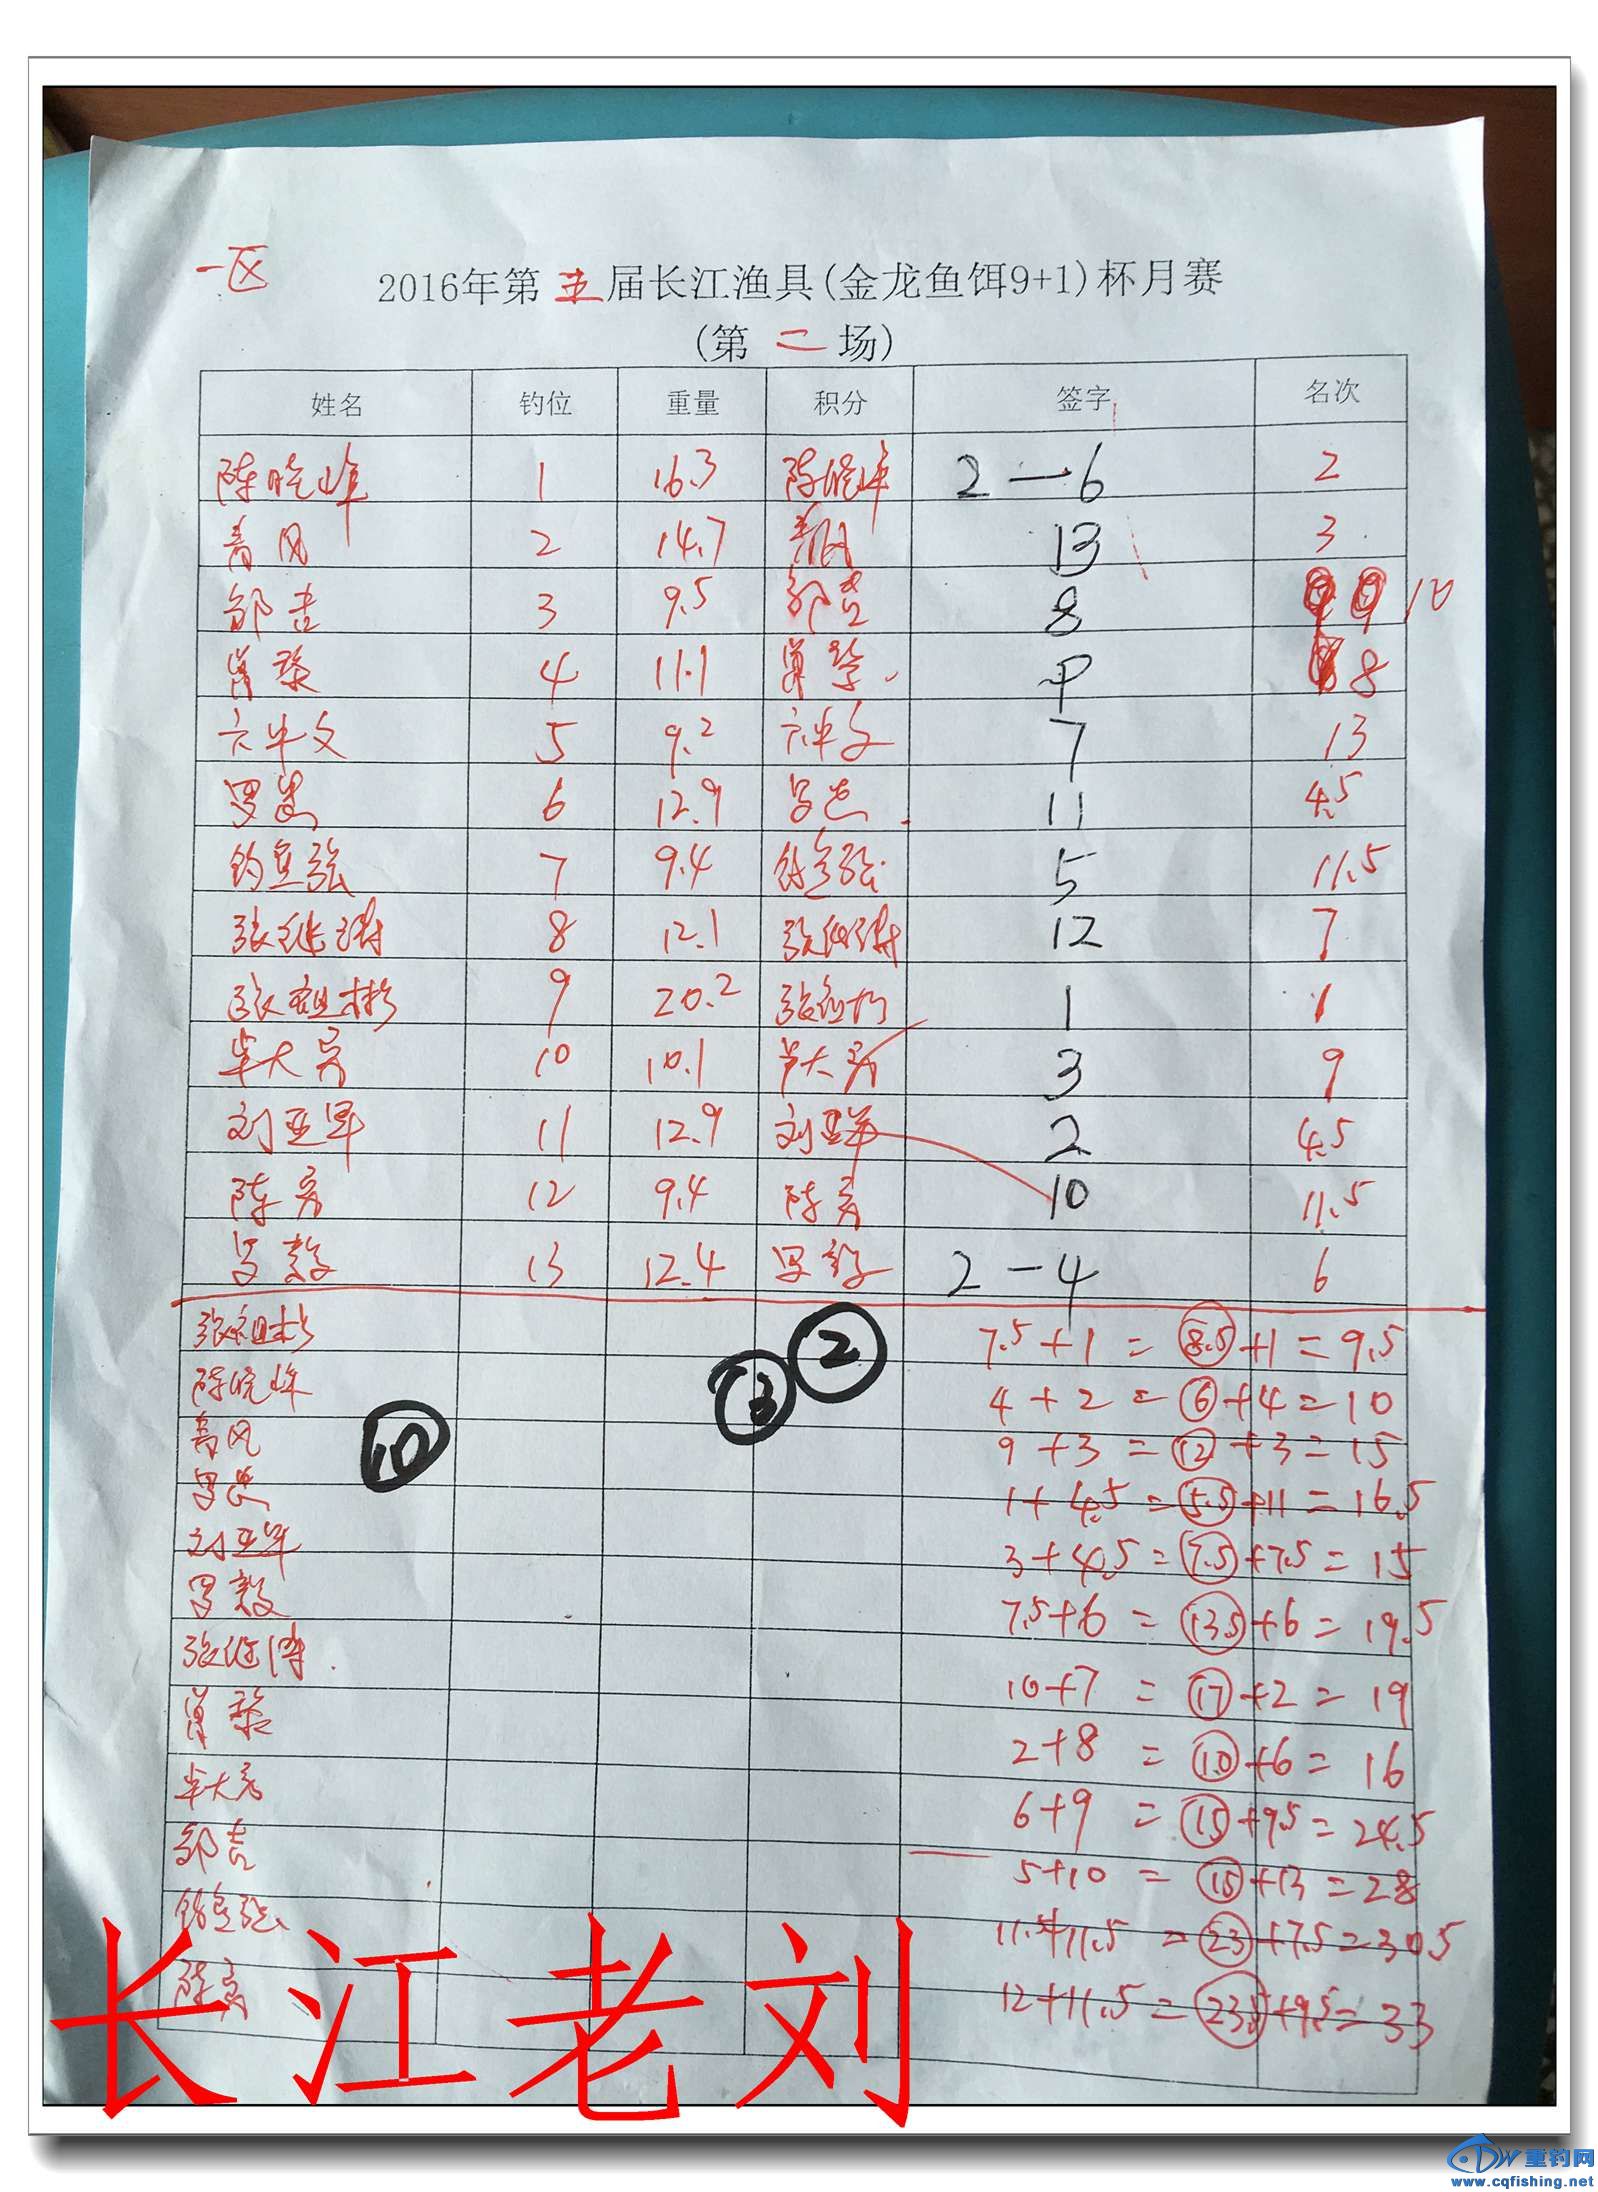 一区
2016年第五届长江渔具(金龙鱼饵9+1)杯月赛
(第二场)
姓名 钓位 重量 积分 签字 名次
陈晓峰 1 16.3 陈晓峰 2-6 2
青风 2 14.7 青风 13 3
邹吉 3 9.5 邹吉 8 9 9 10
肖黎 4 11.1 肖黎 8
六中文 5 9.2 六中文 7 13
罗忠 6 12.9 罗忠 11 4.5
钓鱼弦 7 9.4 钓鱼弦 5 11.5
张继涛 8 12.1 张继涛 12 7
张祖彬 9 20.2 张祖彬 1 1
牟大亮 10 10.1 牟大亮 3 9
刘亚军 11 12.9 刘亚军 2 4.5
陈亮 12 9.4 陈亮 10 11.5
罗毅 13 12.4 罗毅 2-4 6
张祖彬 ② 7.5+1=8.5+1=9.5
陈晓峰 ③ 4+2=6+4=10
青风 ⑩ 9+3=12+3=15
罗忠 1+4.5=5.5+11=16.5
刘亚军 3+4.5=7.5+7.5=15
罗毅 7.5+6=13.5+6=19.5
张继涛 10+7=17+2=19
肖黎 2+8=10+6=16
牟大亮 6+9=15+9.5=24.5
邹吉 5+10=15+13=28
钓鱼弦 11.5+11.5=23+7.5=30.5
陈亮 12+11.5=23.5+9.5=33
长江老刘
重钓网
www.cqfishing.net